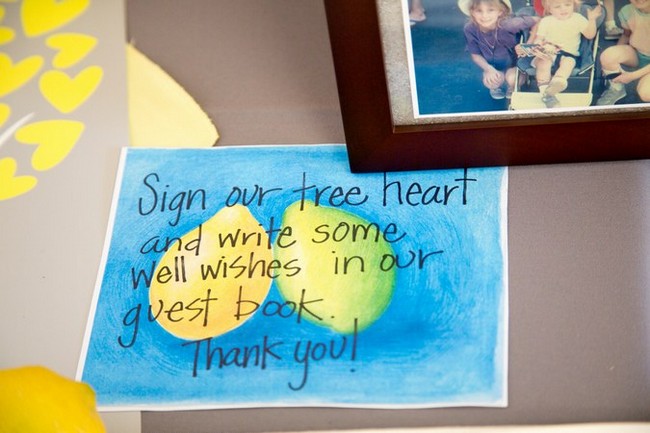 Sign our tree heart
and write some
well wishes in our
guest book.
Thank you!